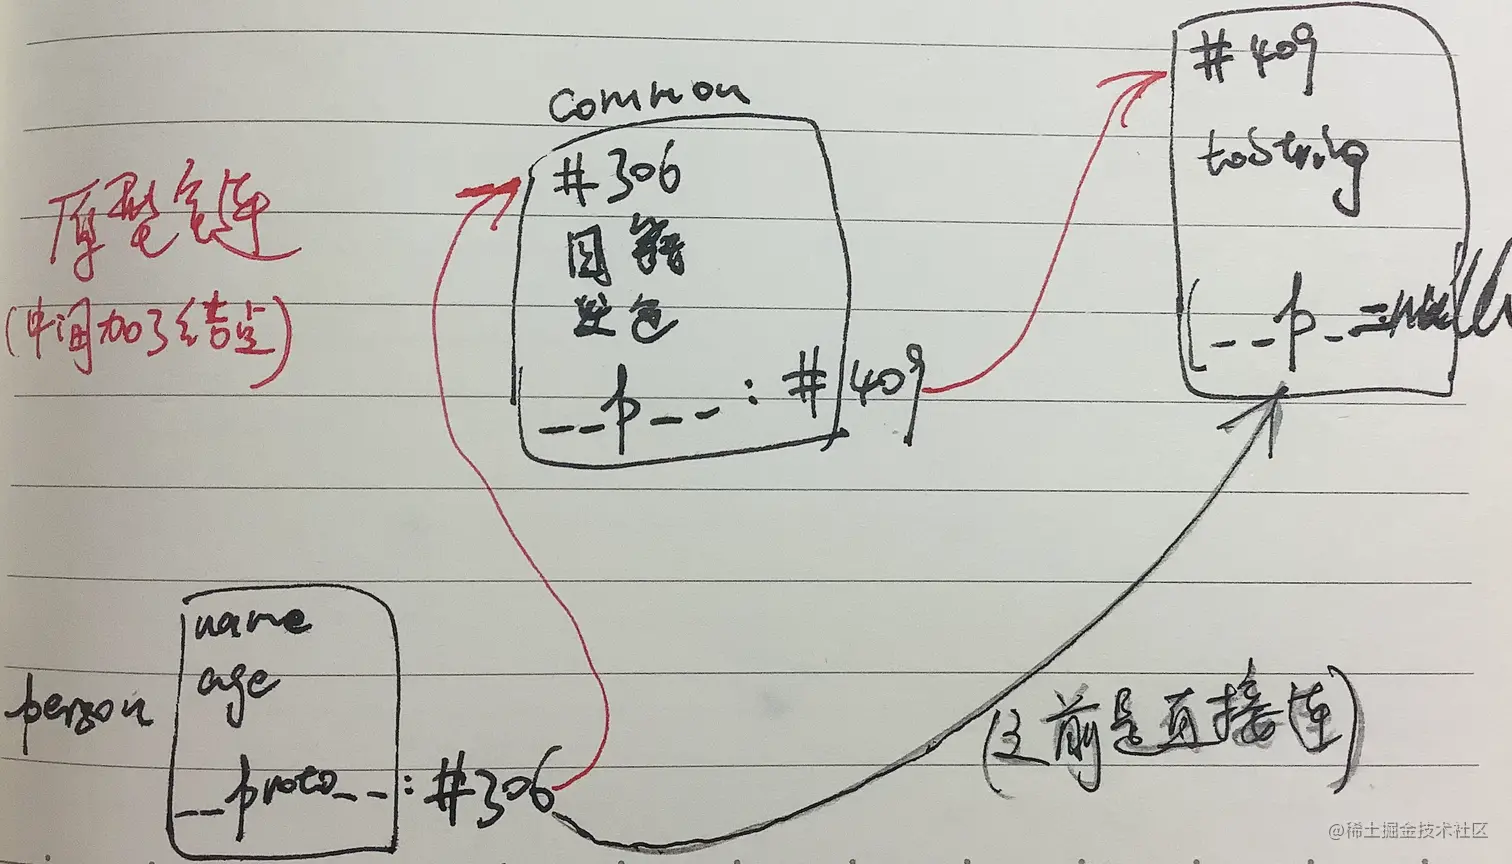 common
#306
国籍
发色
__p__:#409
#409
toString
__p_=null
原型链
(中间加了结点)
person
name
age
__proto__:#306
(之前是直接连)
@稀土掘金技术社区